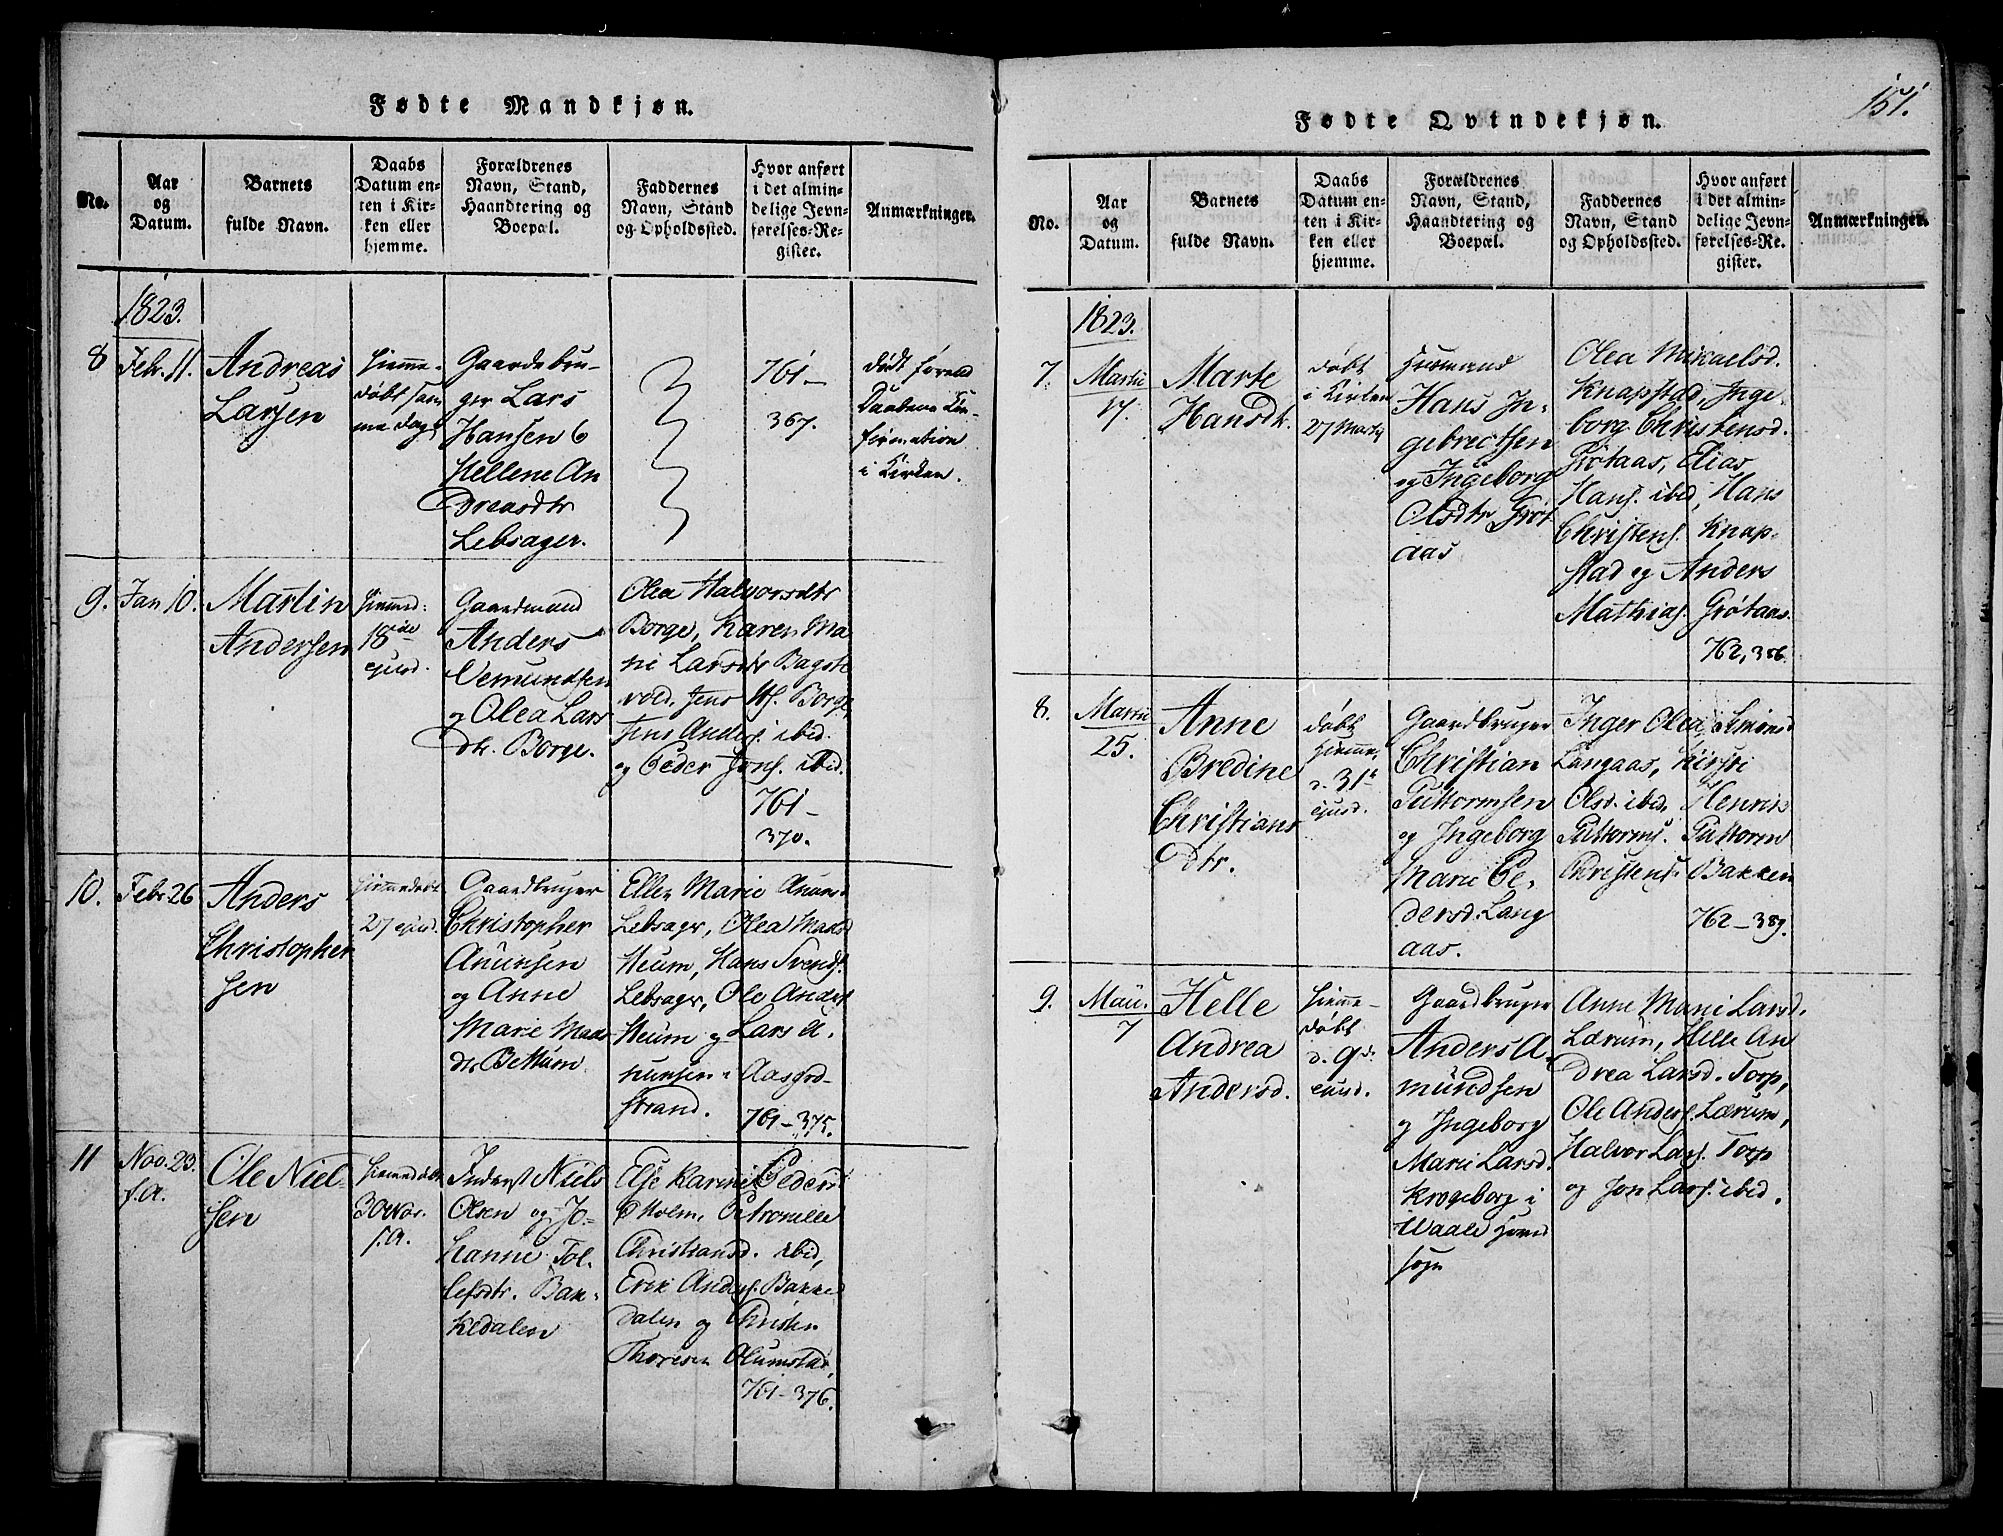 Fødte Mandkjøn.
No.
Aar
og
Datum.
Barnets
fulde Navn.
Daabs
Datum en-
ten i Kir-
ken eller
hjemme.
Forældrenes
Navn, Stand,
Haandtering og
Boepæl.
Faddernes
Navn, Stand
og Opholdssted.
Hvor anført
i det almin-
delige Jevn-
førelses-Re-
gister.
Anmærkninger.
1823.
8
Febr. 11.
Andreas
Larsen
hjemme-
døbt sam
me dag
Gaardebru-
ger Lars
Hansen &
Hellene An
dreasdtr
Lebsager.
761-
367.
død førend
Daabens Con-
firmation
i Kirken.
9.
Jan 10.
Martin
Andersen
hjemmed:
18de
ejusd.
Gaardmand
Anders
Vemundsen
og Olea Lars
dtr. Borge.
Olea Halvorsdtr
Borge, Karen Ma
rie Larsdtr Bagste
vold, Jens Borge,
Jens Anders. ibid.
og Peder Jons. ibid.
761-
370.
10.
Febr 26
Anders
Christopher
sen
hjemmedøbt
27 ejusd.
Gaardbruger
Christopher
Anunsen
og Anne
Marie Mads
dtr Bettum
Ellen Marie Anuns
Lebsagr, Olea Madsd
Heum, Hans Svends.
Lebsagr, Ole Anders
Heum og Lars A.
nunsen i Aasgrd-
strand.
761-375.
11
Nov. 23.
f. A.
Ole Niel
sen
hjemmedøbt
30 Nov.
f. A.
Inderst Niels
Olsen og Jo-
hanne Tol-
lefsdtr. Bak-
kedalen
Else Karine Peders
Holm, Petronelle
Christiansd. ibid,
Erik Anders. Bakke
dalen og Christen
Thoresen Olumstad,
761-376.
151.
Fødte Qvindekjøn.
No.
Aar
og
Datum.
Barnets
fulde Navn.
Daabs
Datum en-
ten i Kir-
ken eller
hjemme.
Forældrenes
Navn, Stand,
Haandtering og
Boepæl.
Faddernes
Navn, Stand
og Opholdssted.
Hvor anført
i det almin-
delige Jevn-
førelses-Re-
gister.
Anmærkninger.
1823.
7.
Martii
17.
Marte
Hansdtr.
døbt
i Kirken
27 Martii
Huusmand
Hans In-
gebrectsen
og Ingeborg
Olsdtr Grøt
aas
Olea Mikaelsd.
Knapstad, Inge-
borg Christensd.
Grøtaas, Elias
Hans. ibid, Hans
Christens. Knap-
stad og Anders
Mathias. Grøtaas.
762, 386.
8.
Martii
25.
Anne
Bredine
Christians
dtr.
døbt
hjemme
d. 31te
ejusd.
Gaardbruger
Christian
Guttormsen
og Ingeborg
Marie Pe-
dersd. Lang
aas.
Inger Olea Simonsd
Langaas, Kirsti
Olsd. ibid, Henrik
Guttorms. Guttorm
Christens. Bakken
762-389.
9.
Maii.
7
Helle
Andrea
Andersd.
hjemme-
døbt
d. 9de
ejusd.
Gaardbruger
Anders A-
mundsen
og Ingeborg
Marie Larsd.
Krogeborg i
Waale Hoved
sogn
Anne Marie Larsd.
Lærum, Helle An
drea Larsd. Torp,
Ole Anders. Lærum,
Halvor Lars. Torp
og Jon Lars. ibid.